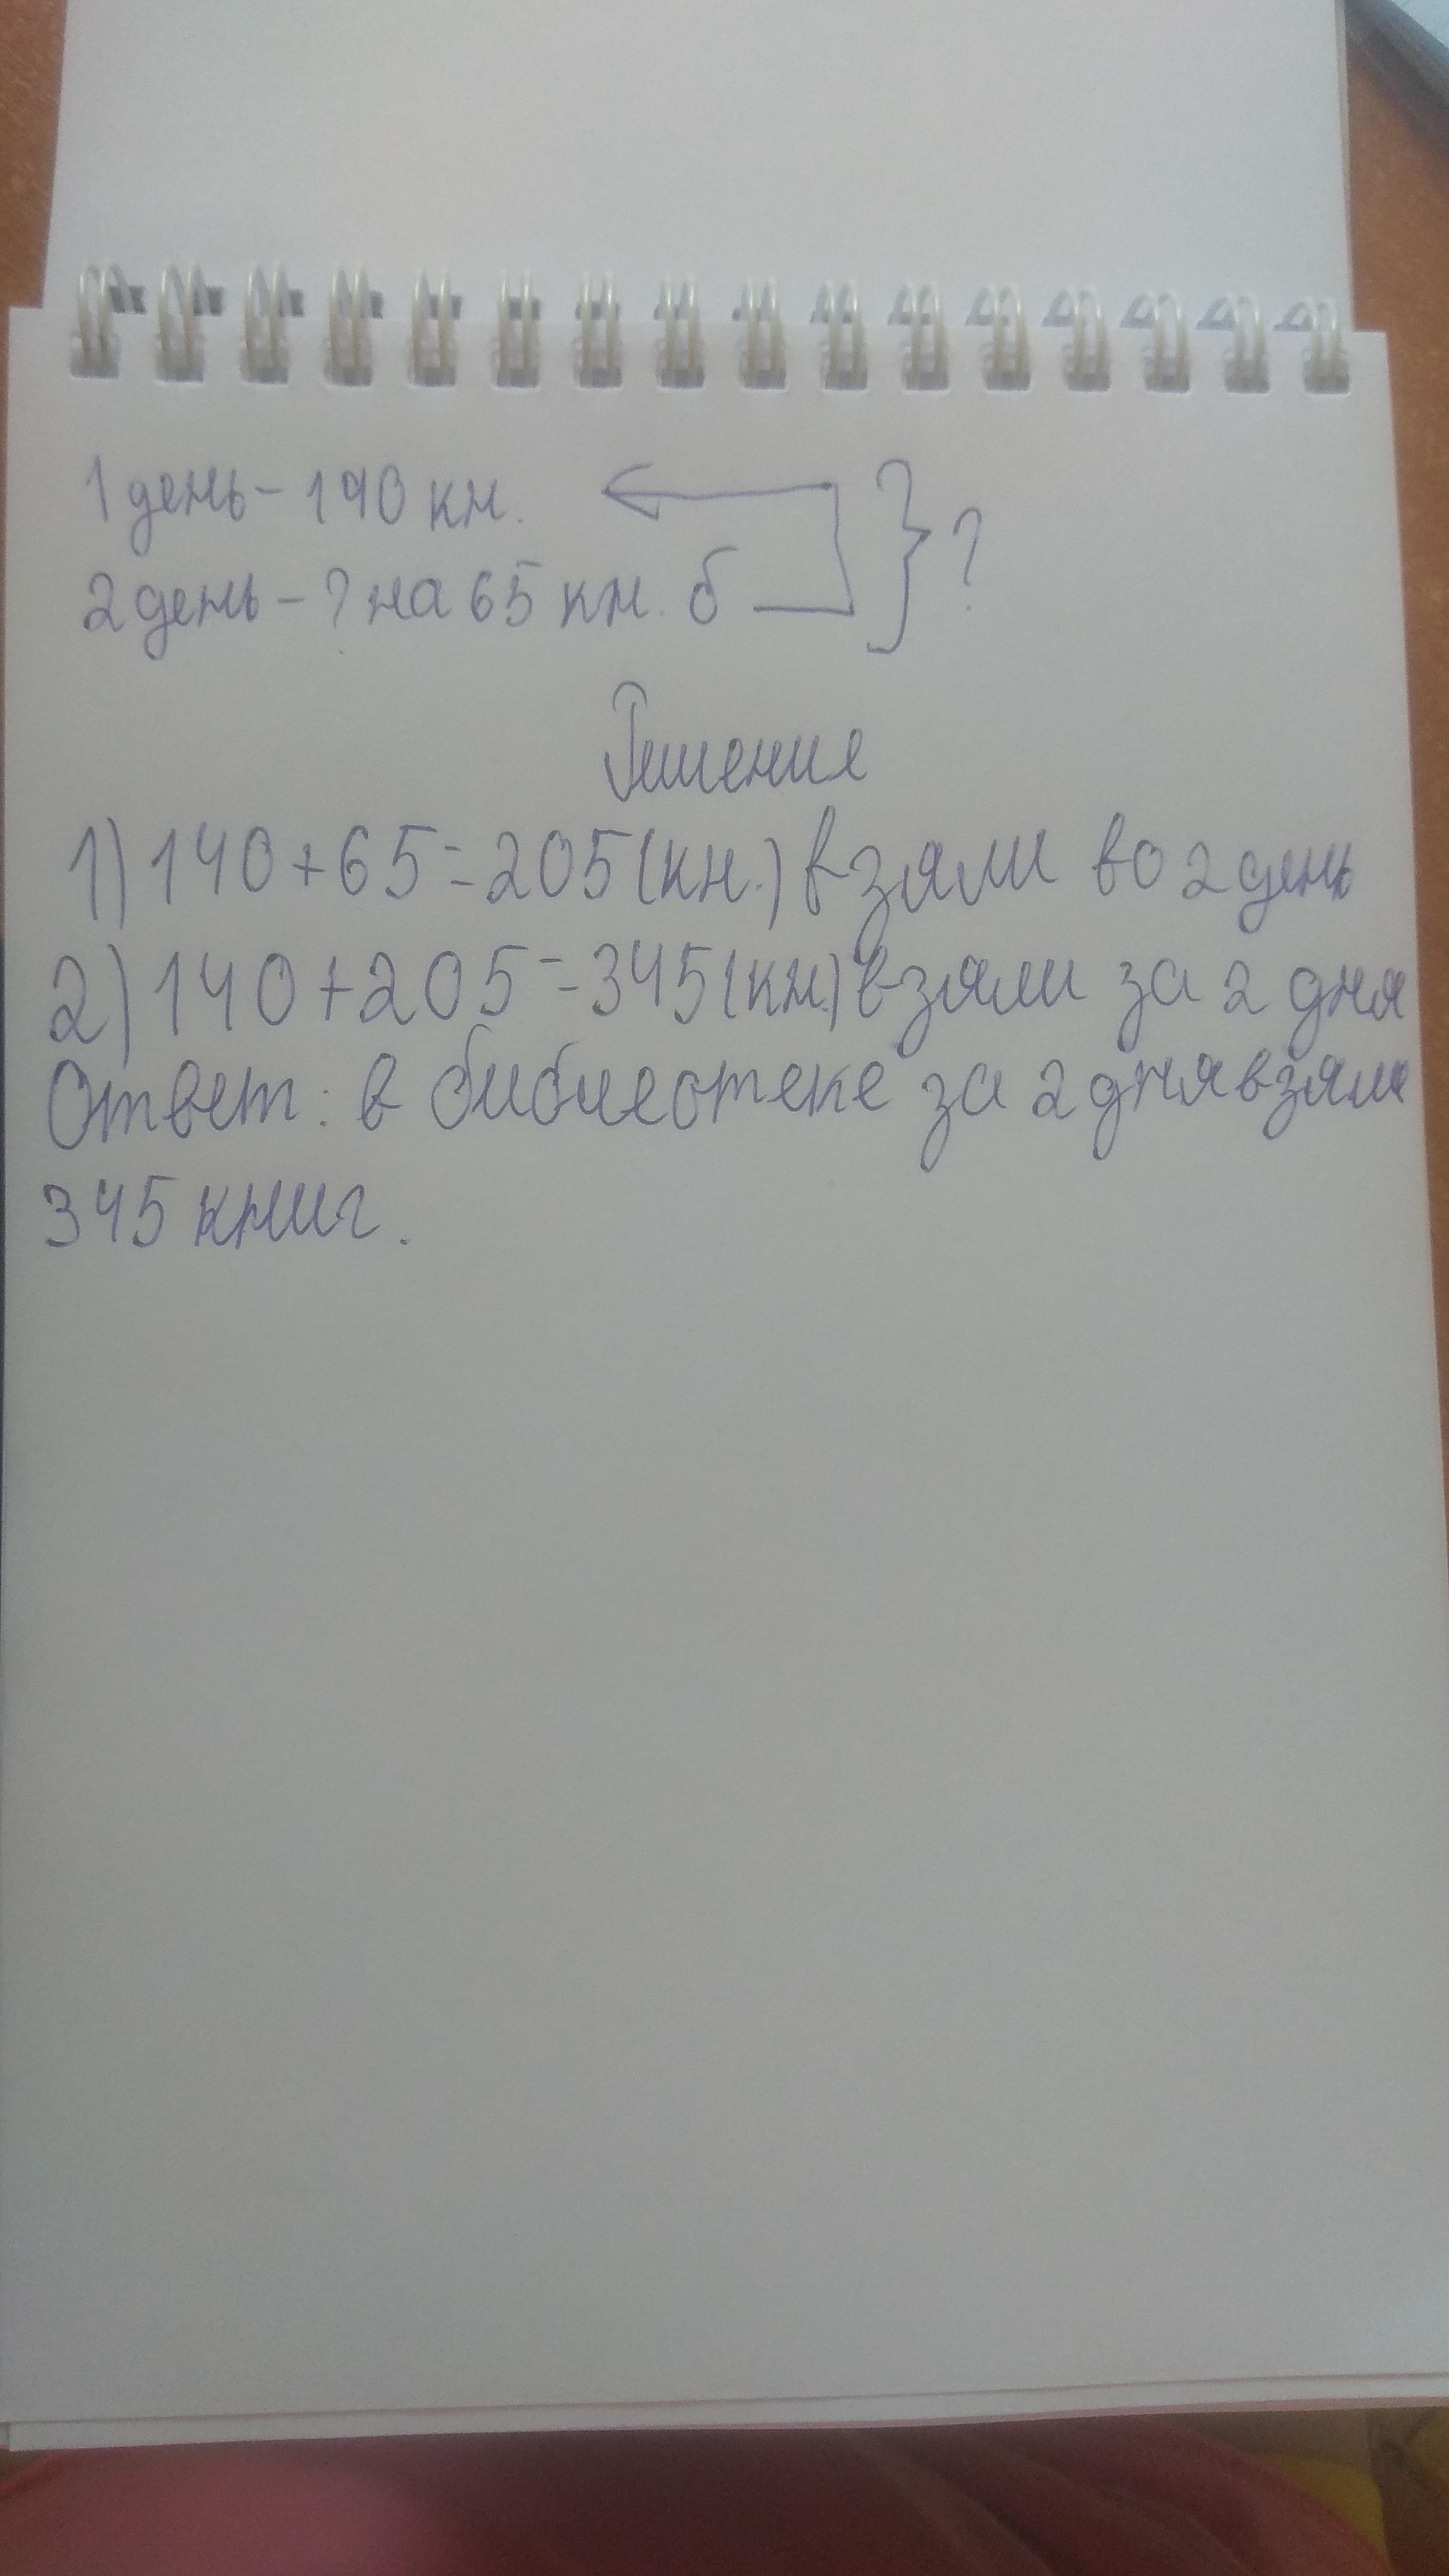 1 день - 140 кн.
2 день - ? на 65 кн. б } ?
Решение
1) 140+65=205(кн.) взяли во 2 день
2) 140+205=345(кн.) взяли за 2 дня
Ответ: в библеотеке за 2 дня взяли
345 книг.